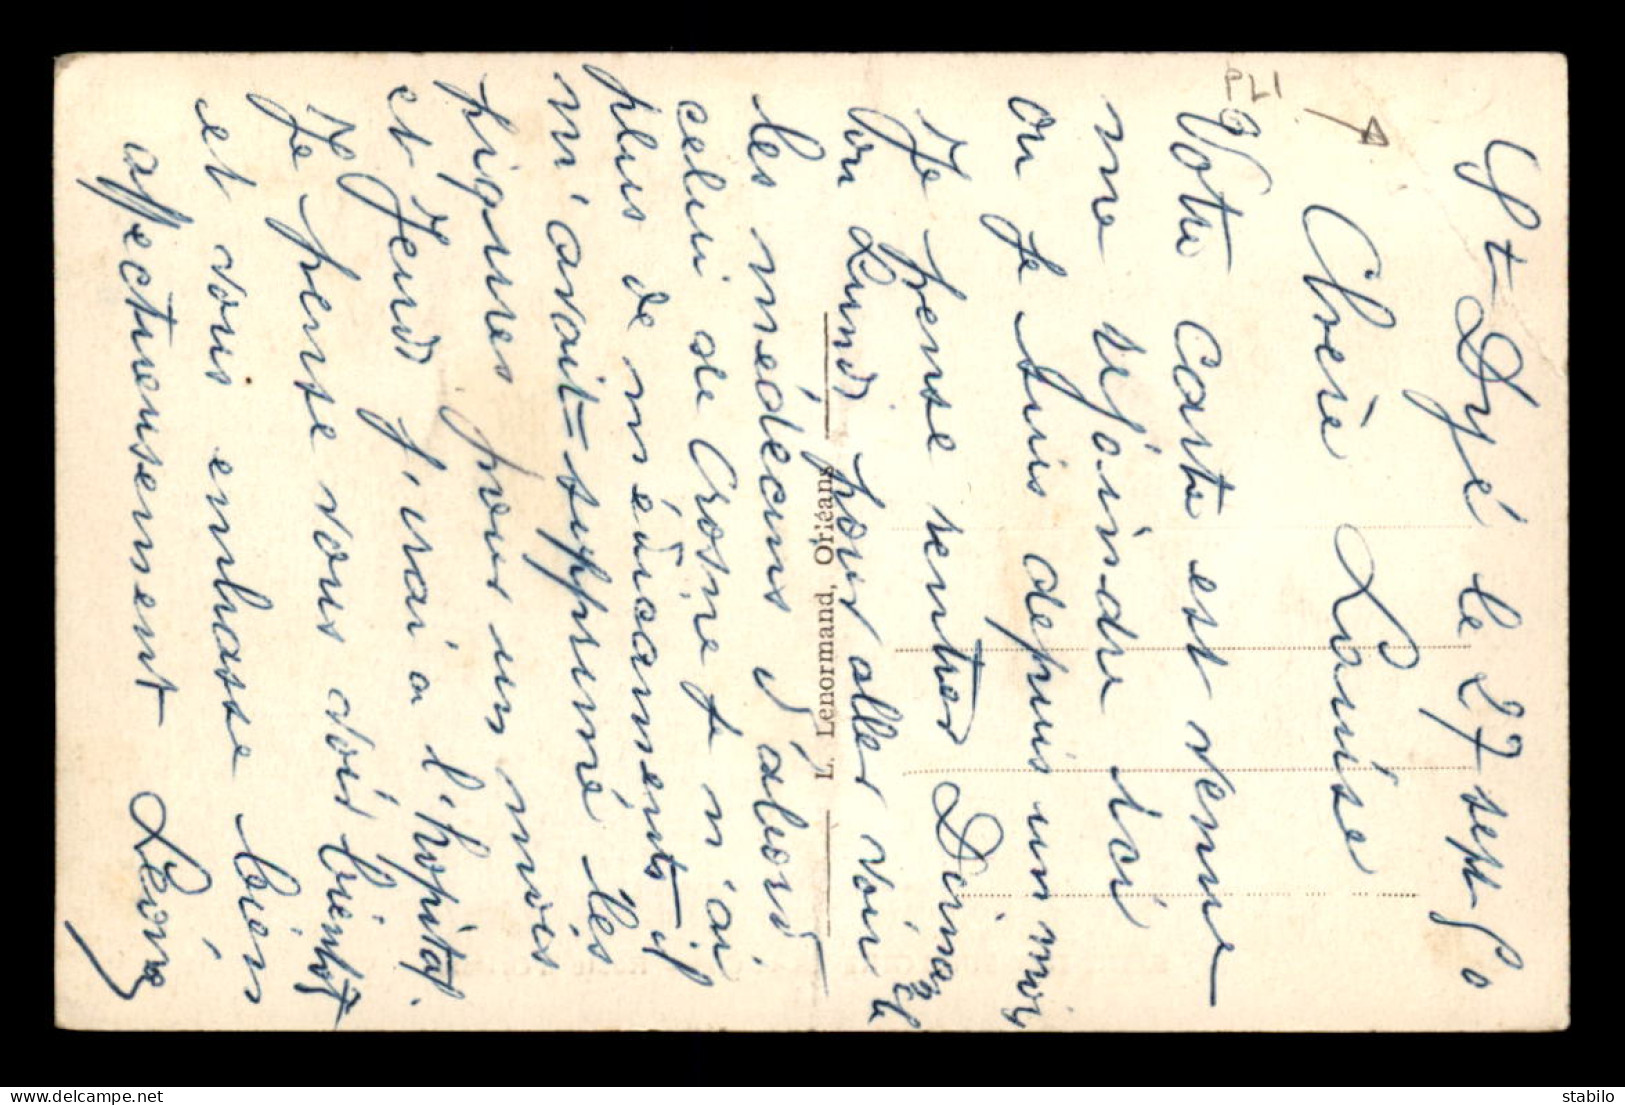 St Dyé le 27 sept 50
Chère Louise
Votre carte est venue
me rejoindre ici
ou je suis depuis un mois
Je pense rentrer Dimanche
ou Lundi pour aller voir
les médecins d'abord
celui de Crosne je n'ai
plus de médicaments il
m'avait supprimé les
piqures pour un mois
et Jeudi j'irai a l'hopital.
Je pense vous voir bientot
et vous embrasse bien
affectueusement
PLI
L. Lenormand, Orléans
stabilo
delcampe.net